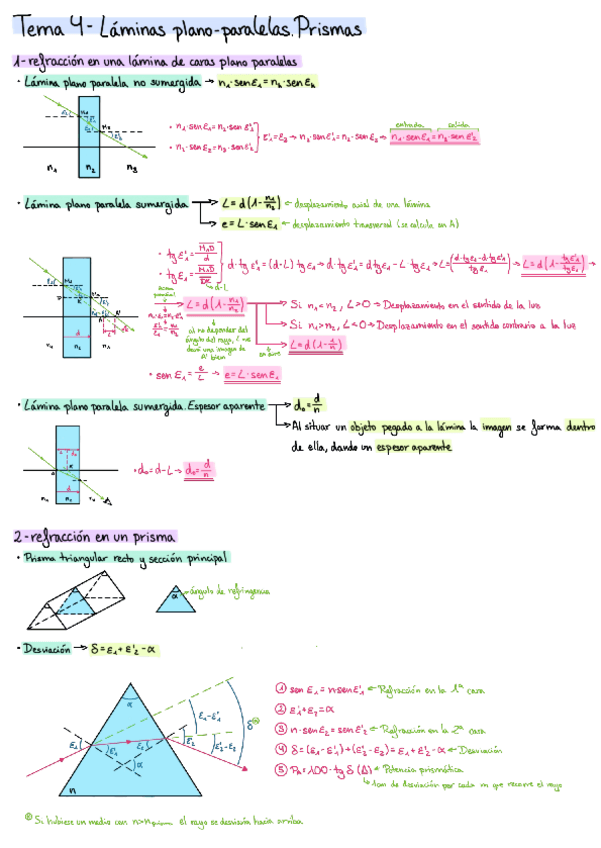 Tema 4- Láminas plano-paralelas. Prismas
1- refracción en una lámina de caras plano paralelas
· Lámina plano paralela no sumergida → n₁·senε₁ = n₂·senε₂
ε₁ M₁
M₂
ε'₂
n₁ n₂ n₃
· n₁·senε₁ = n₂·senε'₁
· n₂·senε₂ = n₃·senε'₂
ε'₁ = ε₂ → n₂·senε'₁ = n₂·senε₂ →
entrada salida
n₁·senε₁ = n₃·senε'₂
· Lámina plano paralela sumergida → L = d(1 - n₁/n₂) ← desplazamiento axial de una lámina
→ e = L·senε₁ ← desplazamiento transversal (se calcula en A)
· tgε'₁ = M₁D/d
· tgε₁ = M₁D/DK
d-L
d·tgε'₁ = (d-L)tgε₁ → d·tgε'₁ = d·tgε₁ - L·tgε₁ → L = (d·tgε₁ - d·tgε'₁ / tgε₁) → L = d(1 - tgε'₁/tgε₁) →
n₁ n₂ n₁
zona paraxial
L = d(1 - n₁/n₂)
→ Si n₁<n₂, L>0 → Desplazamiento en el sentido de la luz
→ Si n₁>n₂, L<0 → Desplazamiento en el sentido contrario a la luz
en aire
L = d(1 - 1/n)
al no depender del ángulo del rayo, L nos dará una imagen de A' bien
· senε₁ = e/L → e = L·senε₁
· Lámina plano paralela sumergida. Espesor aparente → d₀ = d/n
→ Al situar un objeto pegado a la lámina la imagen se forma dentro
de ella, dando un espesor aparente
d₀
d
n₁ n₂ n₁
· d₀ = d - L → d₀ = d/n
2- refracción en un prisma
· Prisma triangular recto y sección principal
α
ángulo de refringencia
· Desviación → δ = ε₁ + ε'₂ - α
α
ε₁-ε'₁
δ
ε₁ ε'₁ ε₂ ε'₂ ε'₂-ε₂
α
n
① senε₁ = n·senε'₁ ← Refracción en la 1ª cara
② ε'₁ + ε₂ = α
③ n·senε₂ = senε'₂ ← Refracción en la 2ª cara
④ δ = (ε₁ - ε'₁) + (ε'₂ - ε₂) = ε₁ + ε'₂ - α ← Desviación
⑤ P = 100·tgδ (Δ) ← Potencia prismática
↳ 1cm de desviación por cada m que recorre el rayo
Si hubiese un medio con n>nprisma el rayo se desviaría hacia arriba